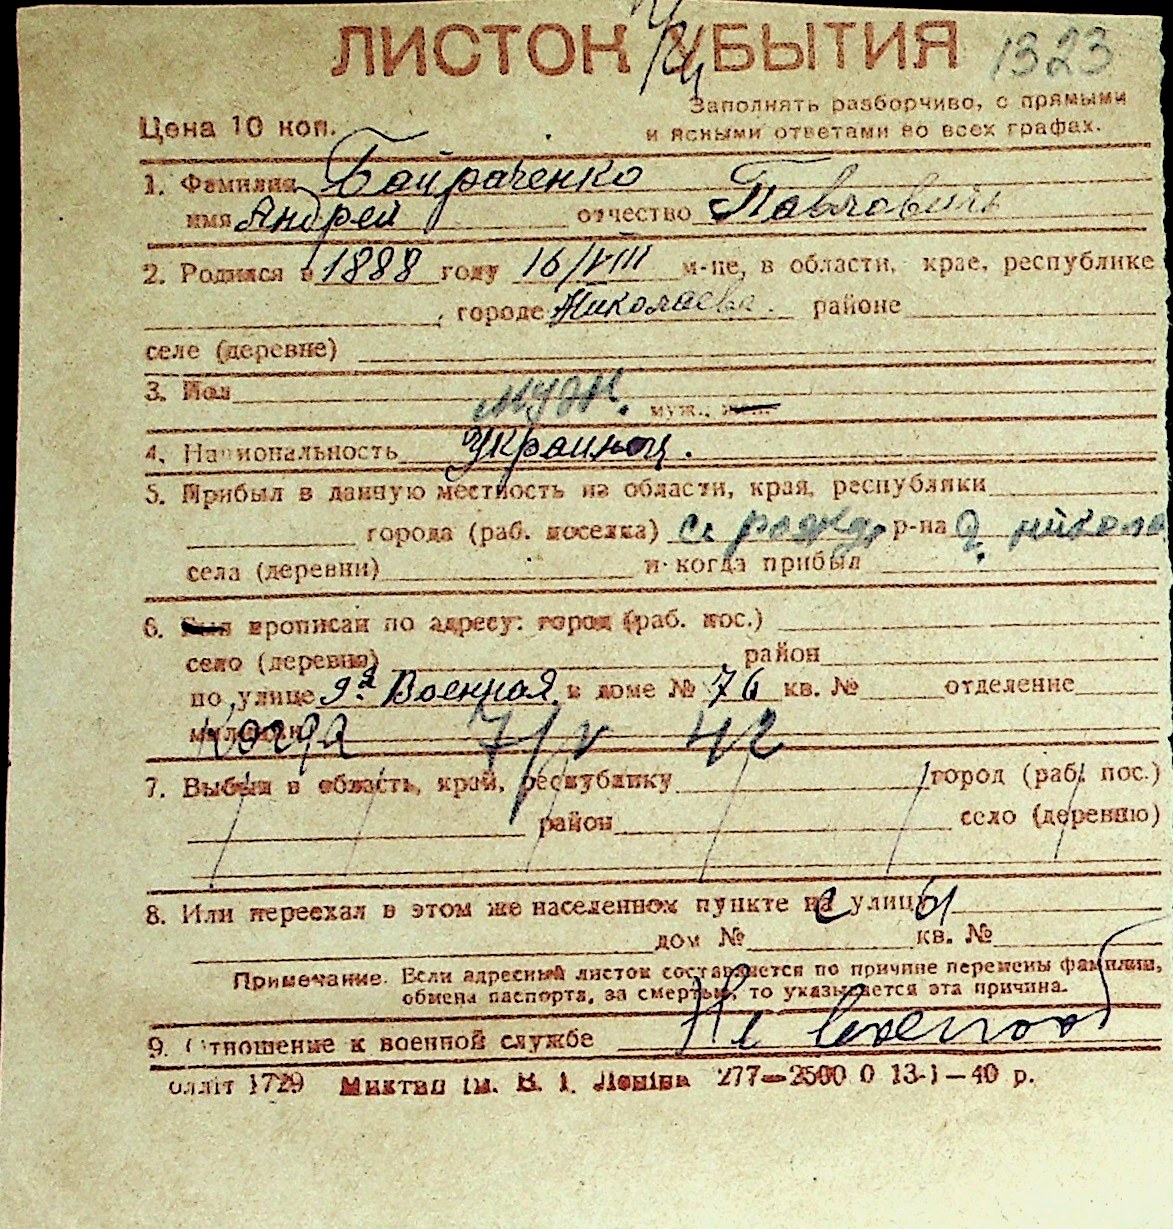 ЛИСТОК УБЫТИЯ 1323
Заполнять разборчиво, с прямыми
Цена 10 коп. и ясными ответами во всех графах.
1. Фамилия Байраченко
имя Андрей отчество Павлович
2. Родился в 1888 году 16/VIII м-це, в области, крае, республике
, городе Николаеве. районе
селе (деревне)
3. Пол муж. муж., жен.
4. Национальность Украинец.
5. Прибыл в данную местность из области, края, республики
города (раб. поселка) с рожд, р-на г. никола
села (деревни) и когда прибыл
6. Был прописан по адресу: город (раб. пос.)
село (деревня) район
по улице 9ая Военная в доме № 76 кв. № отделение
милиции Когда 7/V 42
7. Выбыл в область, край, республику город (раб. пос.)
район село (деревню)
8. Или переехал в этом же населенном пункте на с улицу ы
дом № кв. №
Примечание. Если адресный листок составляется по причине перемены фамилии,
обмена паспорта, за смертью, то указывается эта причина.
9. Отношение к военной службе Не
олліт 1729 Миктип ім. В. І. Леніна 277—2500 0 13-1—40 р.